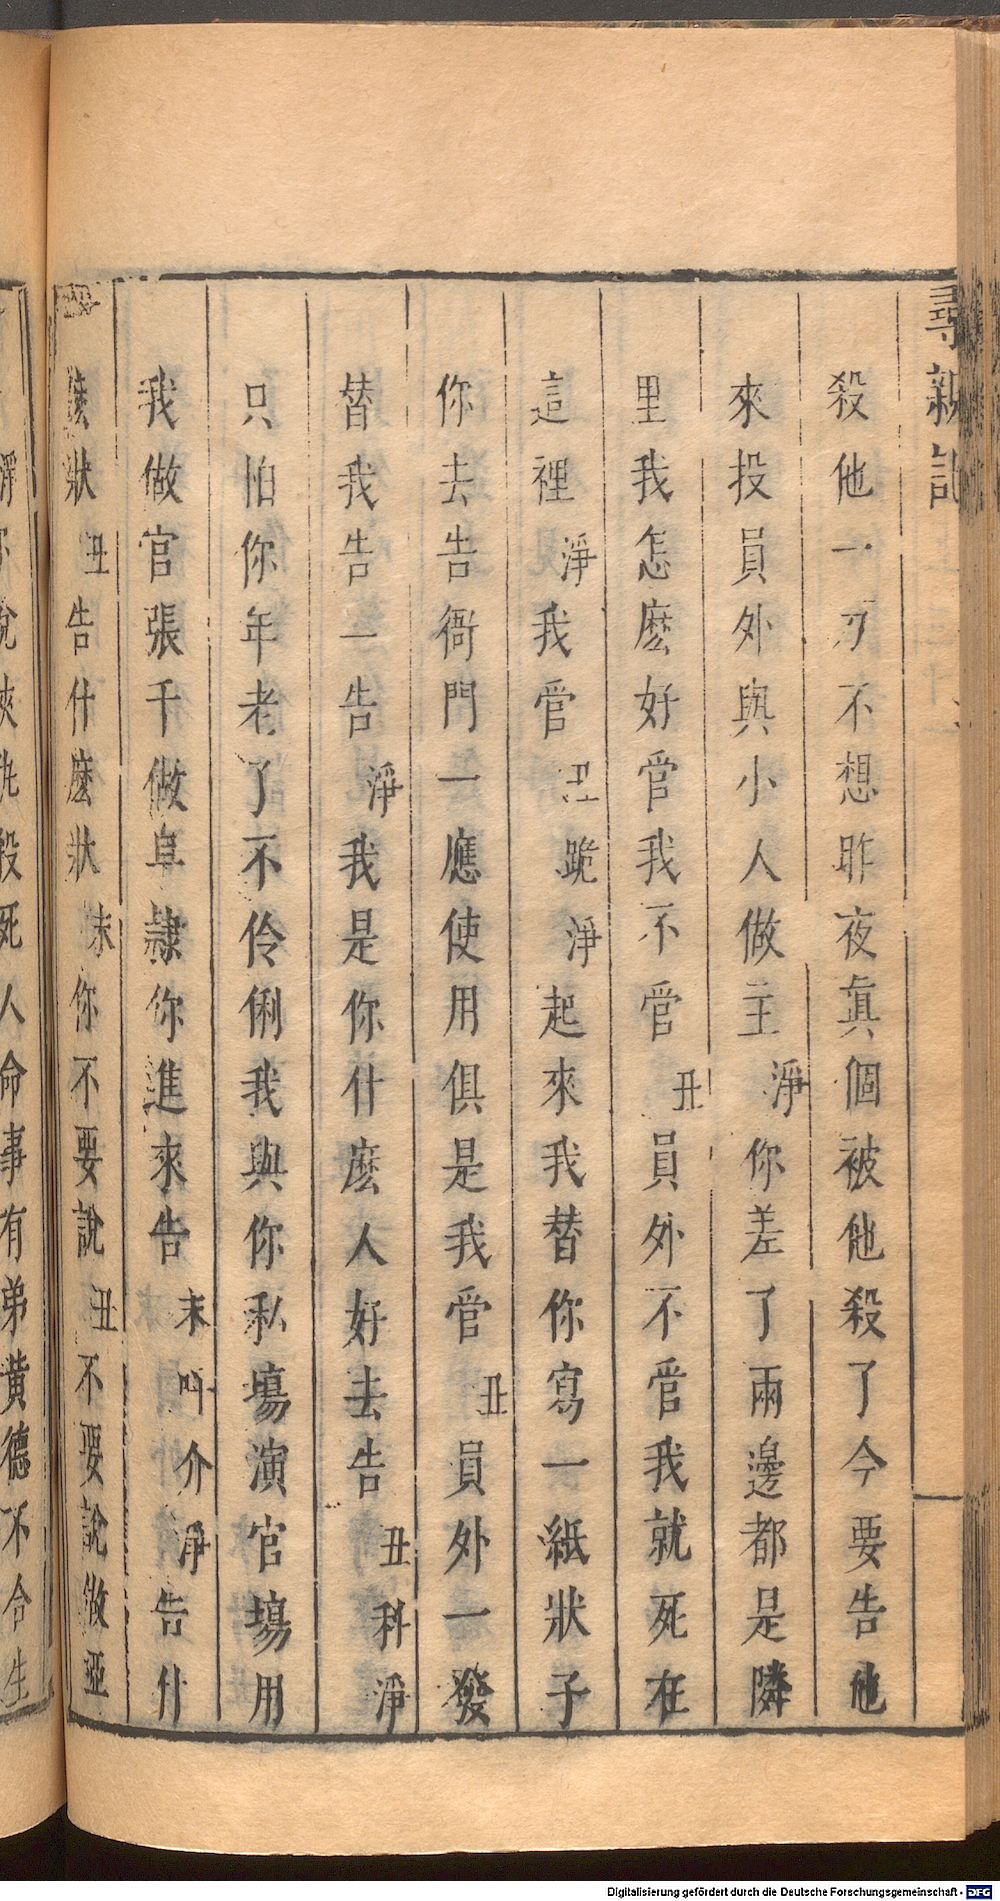 尋親記
殺他一刀不想昨夜眞個被他殺了今要告他
來投員外與小人做主淨你差了兩邊都是隣
里我怎麽好管我不管丑員外不管我就死在
這裡淨我管丑跪淨起來我替你寫一紙狀子
你去告衙門一應使用俱是我管丑員外一發
替我告一告淨我是你什麽人好去告丑科淨
只怕你年老了不伶俐我與你私塲演官塲用
我做官張千做皁隷你進來告末呌介淨告什
麽狀丑告什麽狀末你不要說丑不要說做亞
說挾仇殺死人命事有弟黃德不合生
Digitalisierung gefördert durch die Deutsche Forschungsgemeinschaft - DFG